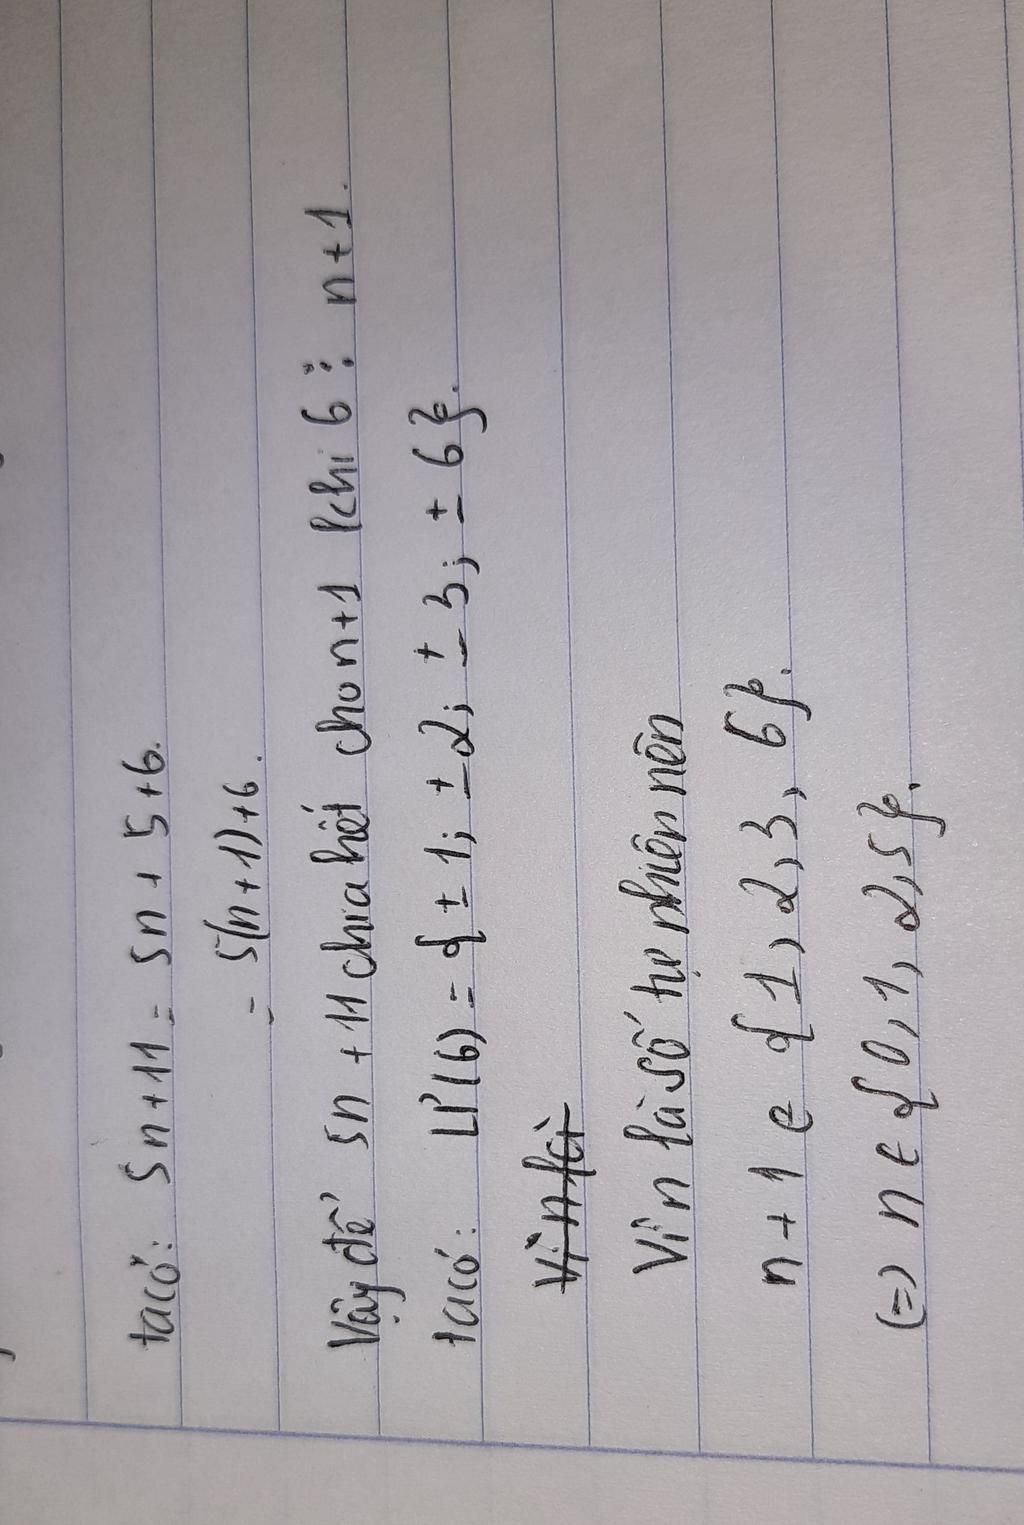 ta có: 5n+11 = 5n + 5+6.
= 5(n+1)+6.
Vậy để 5n +11 chia hết cho n+1 khi 6 ⋮ n+1.
ta có: Ư(6) = { ± 1; ± 2; ± 3; ± 6}.
Vì n là
Vì n là số tự nhiên nên
n + 1 ∈ { 1, 2, 3, 6}.
(=) n ∈ { 0, 1, 2, 5}.